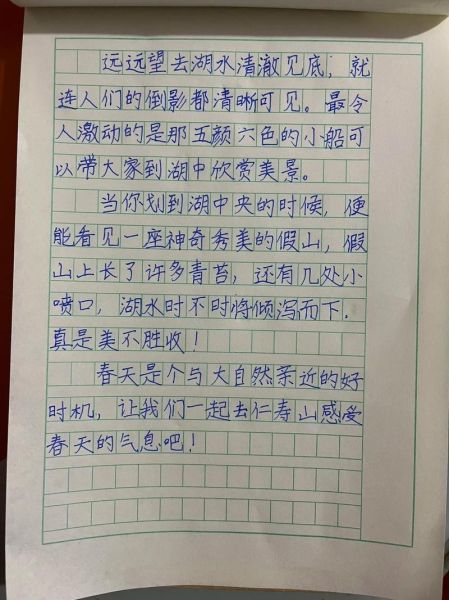 远远望去湖水清澈见底，就
连人们的倒影都清晰可见。最令
人激动的是那五颜六色的小船可
以带大家到湖中欣赏美景。
当你划到湖中央的时候，便
能看见一座神奇秀美的假山，假
山上长了许多青苔，还有几处小
喷口，湖水时不时将倾泻而下.
真是美不胜收！
春天是个与大自然亲近的好
时机，让我们一起去仁寿山感受
春天的气息吧！